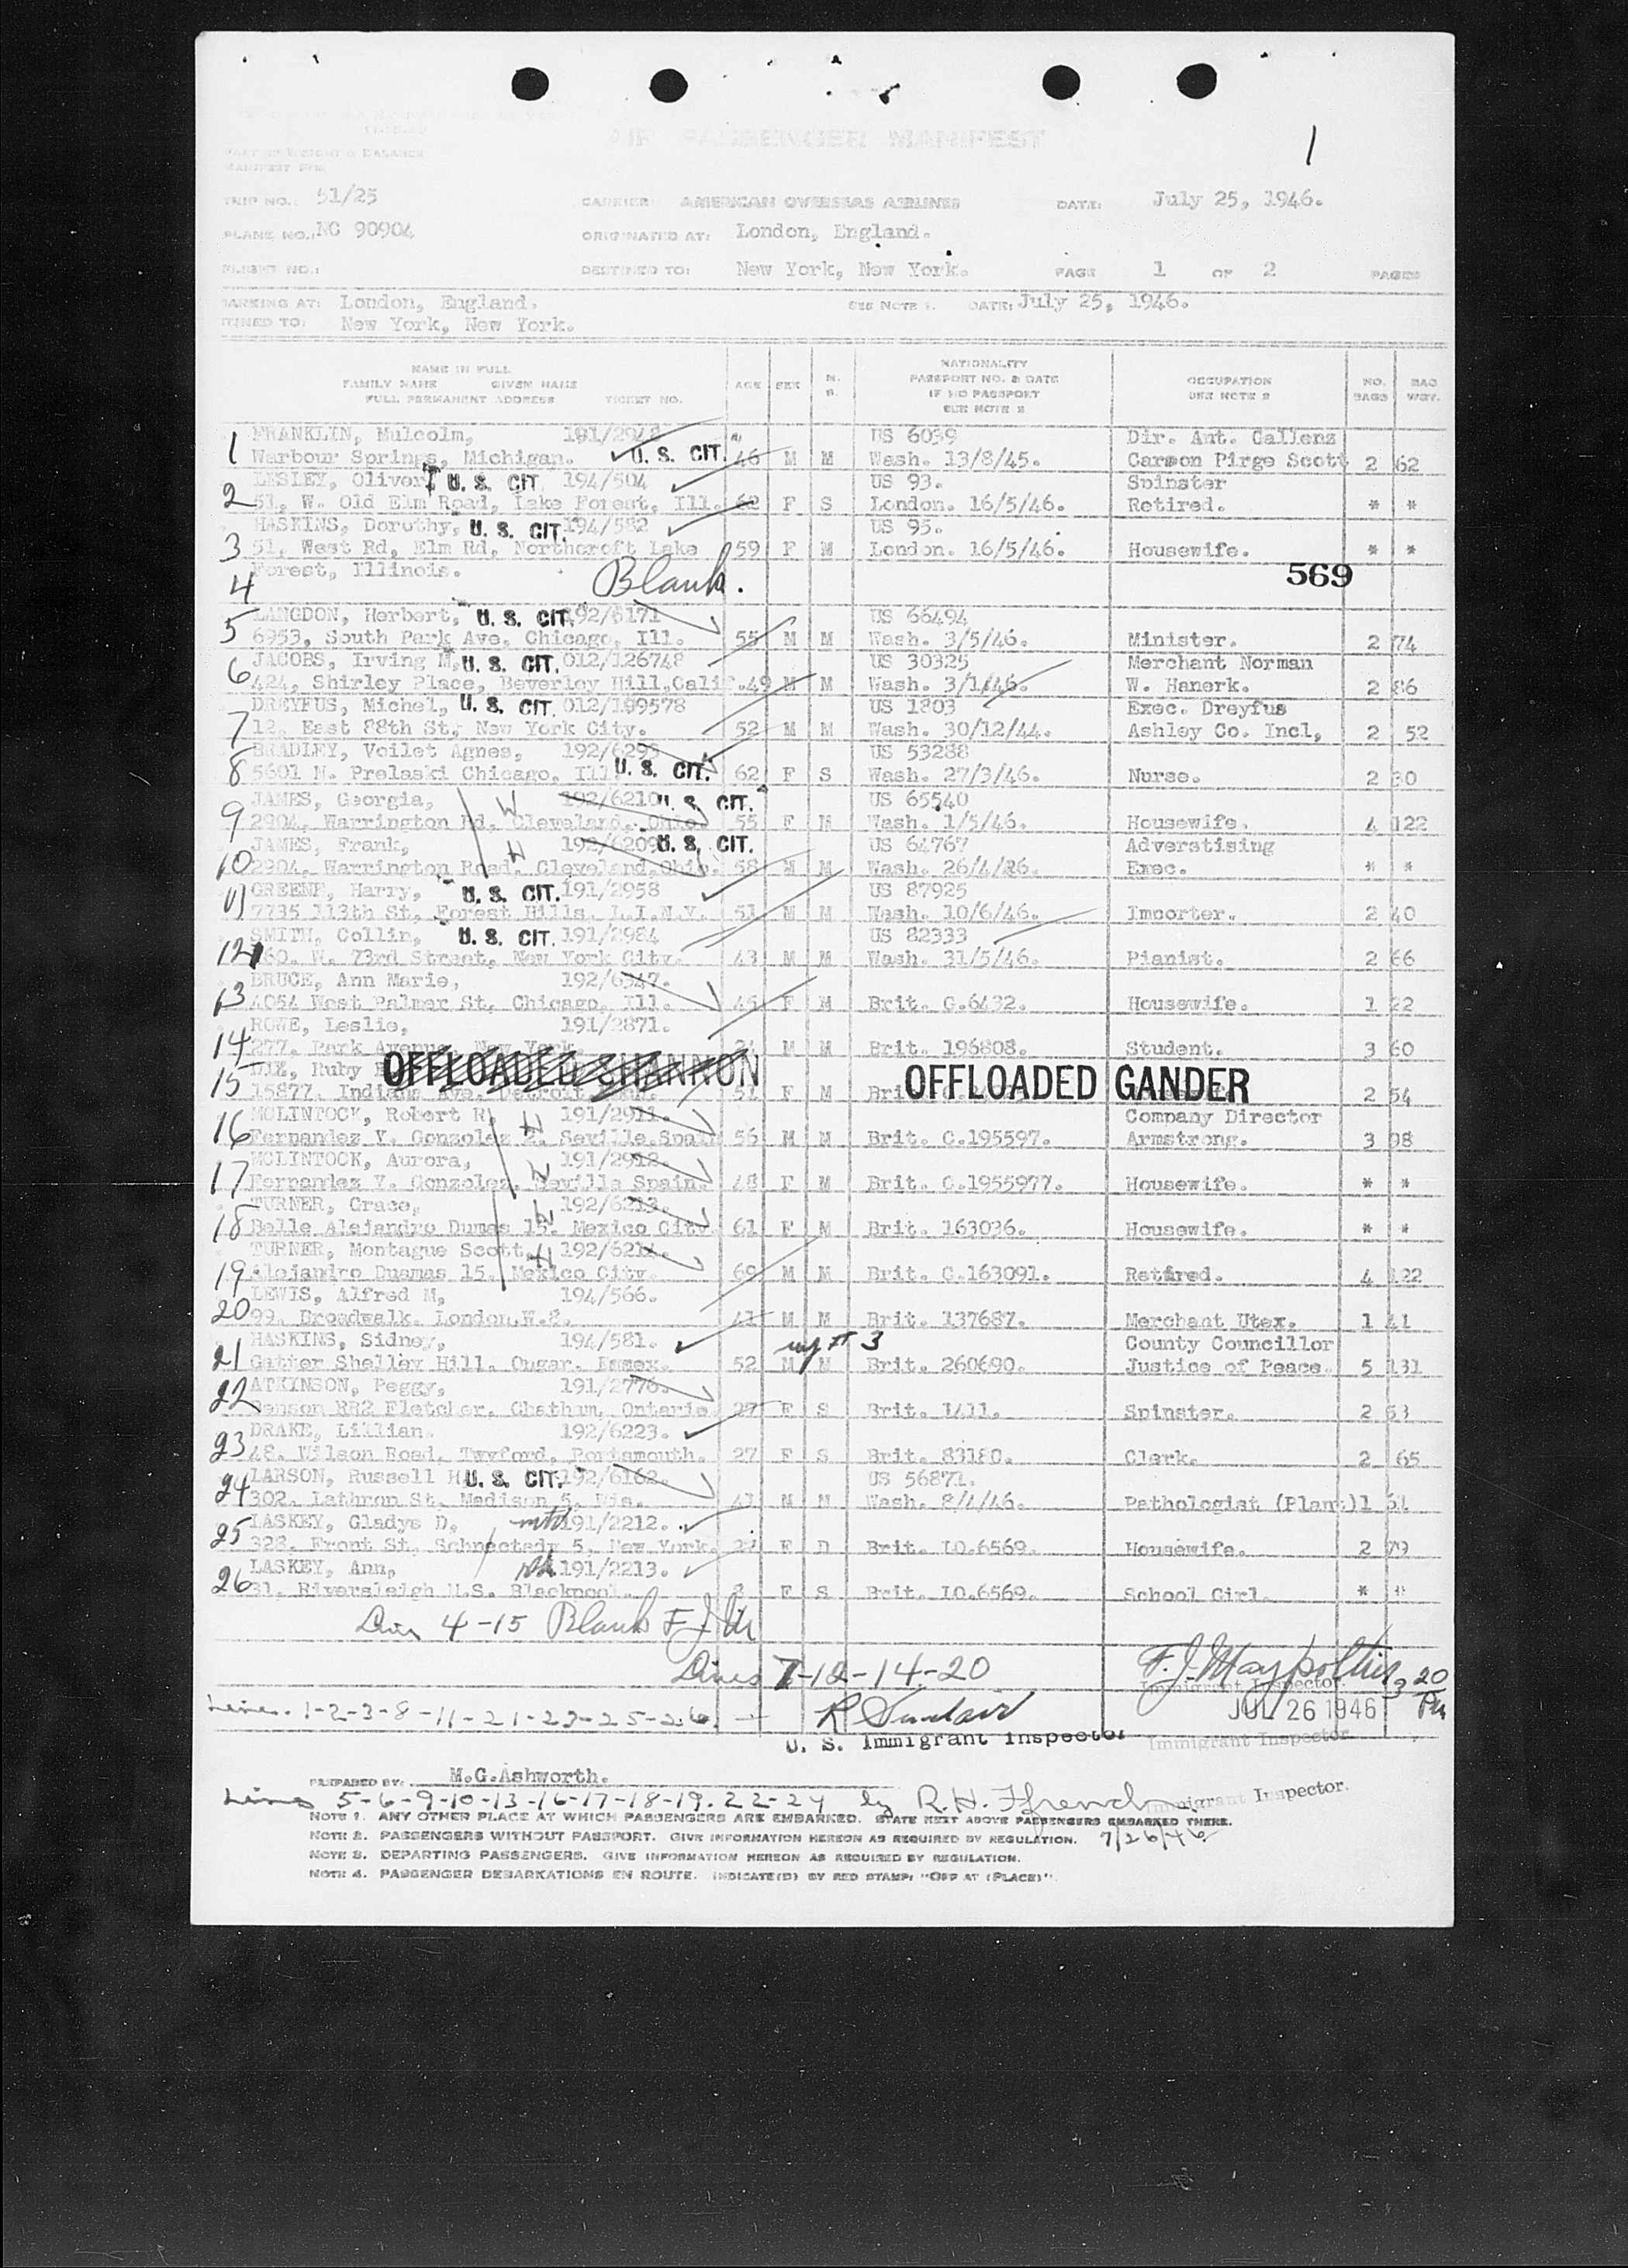 AIR PASSENGER MANIFEST
1
PART OF WEIGHT & BALANCE
MANIFEST FPM
TRIP NO.: 51/25 CARRIER: AMERICAN OVERSEAS AIRLINES DATE: July 25, 1946.
PLANE NO.: NC 90904 ORIGINATED AT: London, England.
FLIGHT NO.: DESTINED TO: New York, New York. PAGE 1 OF 2 PAGES
BARKING AT: London, England. SEE NOTE 1. DATE: July 25, 1946.
TINED TO: New York, New York.
NAME IN FULL
FAMILY NAME GIVEN NAME
FULL PERMANENT ADDRESS TICKET NO.
AGE SEX M. S.
NATIONALITY
PASSPORT NO. & DATE
IF NO PASSPORT
SEE NOTE 2
OCCUPATION
SEE NOTE 2
NO. BAGS BAG WGT.
1 FRANKLIN, Mulcolm, 191/2942 US 6039 Dir. Ant. Gallenz
Warbour Springs, Michigan. U. S. CIT. 46 M M Wash. 13/8/45. Carson Pirge Scott 2 62
LESLEY, Oliver, U. S. CIT. 194/504 US 93. Spinster
2 51, W. Old Elm Road, Lake Forest, Ill. 62 F S London. 16/5/46. Retired. * *
HASKINS, Dorothy, U. S. CIT. 194/582 US 95.
3 51, West Rd, Elm Rd, Northcroft Lake 59 F M London. 16/5/46. Housewife. * *
4 Forest, Illinois. Blank. 569
LANGDON, Herbert, U. S. CIT. 192/6171 US 66494
5 6953, South Park Ave. Chicago, Ill. 55 M M Wash. 3/5/46. Minister. 2 74
JACOBS, Irving M, U. S. CIT. 012/126748 US 30325 Merchant Norman
6 424, Shirley Place, Beverley Hill.Calif. 49 M M Wash. 3/1/46. W. Hanerk. 2 86
DREYFUS, Michel, U. S. CIT. 012/199578 US 1803 Exec. Dreyfus
7 12, East 88th St, New York City. 52 M M Wash. 30/12/44. Ashley Co. Incl, 2 52
BRADLEY, Voilet Agnes, 192/629 US 53288
8 5601 N. Prelaski Chicago, Ill U. S. CIT. 62 F S Wash. 27/3/46. Nurse. 2 30
JAMES, Georgia, W 192/6210 U. S. CIT. US 65540
9 2904, Warrington Rd, Cleveland, Ohio. 55 F M Wash. 1/5/46. Housewife. 4 122
JAMES, Frank, H 192/6209 U. S. CIT. US 64767 Adverstising
10 2904, Warrington Road, Cleveland,Ohio. 58 M M Wash. 26/4/46. Exec. * *
GREENE, Harry, U. S. CIT. 191/2958 US 87925
11 7735 113th St, Forest Hills, L.I.N.Y. 51 M M Wash. 10/6/46. Imcorter. 2 40
SMITH, Collin, U. S. CIT. 191/2984 US 82333
12 160. W. 73rd Street, New York City. 43 M M Wash. 31/5/46. Pianist. 2 66
BRUCE, Ann Marie, 192/6347.
13 4054 West Palmer St, Chicago, Ill. 45 F M Brit. C.6432. Housewife. 1 22
ROWE, Leslie, 191/2871.
14 277. Park Avenue, New York. M M Brit. 196808. Student. 3 60
Ruby OFFLOADED SHANNON OFFLOADED GANDER
15 15877, Indiana Ave. Detroit 51 F M Bri 2 54
MCLINTOCK, Robert R, H 191/2911. Company Director
16 Fernandez Y. Gonzolez 2. Seville.Spain 56 M M Brit. C.195597. Armstrong. 3 98
MCLINTOCK, Aurora, W 191/2912.
17 Fernandez Y. Gonzolez. Seville Spain. 48 F M Brit. C.1955977. Housewife. * *
TURNER, Grace, W 192/6213.
18 Belle Alejandro Dumas 15. Mexico City 61 F M Brit. 163036. Housewife. * *
TURNER, Montague Scott, H 192/6214.
19 Alejandro Duamas 15. Mexico City. 69 M M Brit. C.163091. Retired. 4 122
LEWIS, Alfred M, 194/566.
20 99. Broadwalk. London.W.2. 41 M M Brit. 137687. Merchant Utex. 1 41
HASKINS, Sidney, 194/581. 3 County Councillor
21 Gather Shelley Hill. Ongar. Issex. 52 M M Brit. 260690. Justice of Peace. 5 131
ATKINSON, Peggy, 191/2776.
22 Benson RR2 Fletcher. Chatham, Ontario 27 F S Brit. 1411. Spinster. 2 53
DRAKE, Lillian. 192/6223.
23 48. Wilson Road, Twyford, Portsmouth. 27 F S Brit. 83180. Clerk. 2 65
LARSON, Russell H U. S. CIT. 192/6162. US 56871.
24 302. Lathrop St. Madison 5, Wis. M M Wash. 8/4/46. Pathologist (Plant) 1 51
LASKEY, Gladys D, 191/2212.
25 328. Front St, Schnectady 5, New York. F D Brit. LO.6569. Housewife. 2 79
LASKEY, Ann, 191/2213.
26 31. Riversleigh U.S. Blackpool. F S Brit. LO.6569. School Girl. * *
4-15 Blank
Lines 7-12-14-20
Immigrant Inspector.
3 20 PM
JUL 26 1946
Lines. 1-2-3-8-11-21-23-25-26.
U. S. Immigrant Inspector Immigrant Inspector
PREPARED BY: M.G.Ashworth.
Lines 5-6-9-10-13-16-17-18-19.22-24 by R.H. Ffrench Immigrant Inspector.
7/26/46
NOTE 1. ANY OTHER PLACE AT WHICH PASSENGERS ARE EMBARKED. STATE NEXT ABOVE PASSENGERS EMBARKED THERE.
NOTE 2. PASSENGERS WITHOUT PASSPORT. GIVE INFORMATION HEREON AS REQUIRED BY REGULATION.
NOTE 3. DEPARTING PASSENGERS. GIVE INFORMATION HEREON AS REQUIRED BY REGULATION.
NOTE 4. PASSENGER DEBARKATIONS EN ROUTE. INDICATE(D) BY RED STAMP: "OFF AT (PLACE)".